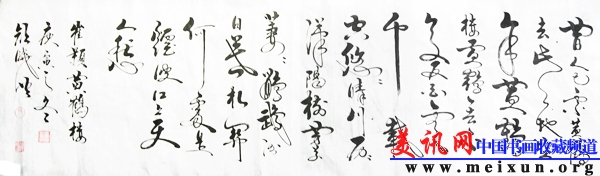 昔人已乘黄鹤
去此地空
余黄鹤
楼黄鹤一去
不复返白云
千载
空悠悠晴川历历
汉阳树芳草
萋萋鹦鹉洲
日暮乡关
何处是
烟波江上使
人愁
崔颢黄鹤楼
庚寅之冬
美讯网中国书画收藏频道
www.meixun.org